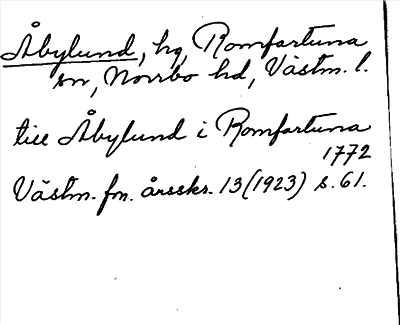 Åbylund, hg, Romfartuna
sn, Norrbo hd, Västm. l.
till Åbylund i Romfartuna
1772
Västm. fm. årsskr. 13 (1923) s. 61.